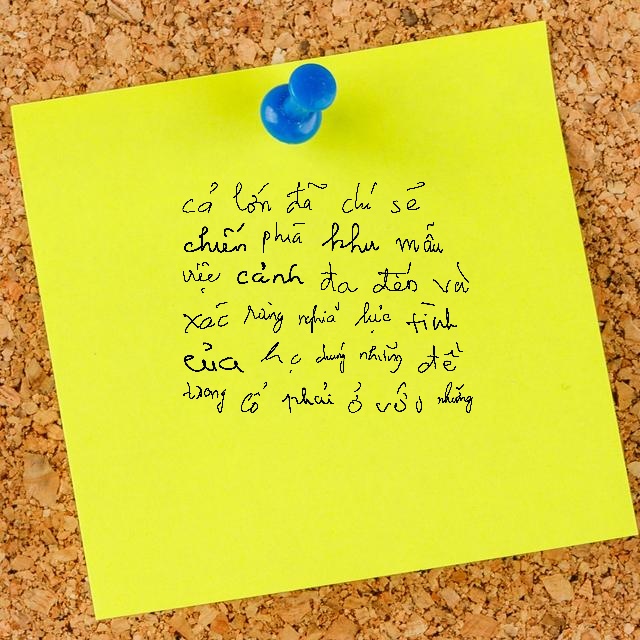 cả lớn đã chí sẽ
chiến phía khu mẫu
việc cảnh đa đến và
xác ràng nghĩa lực tình
của họ chung những để
trong cổ phải ở vào những